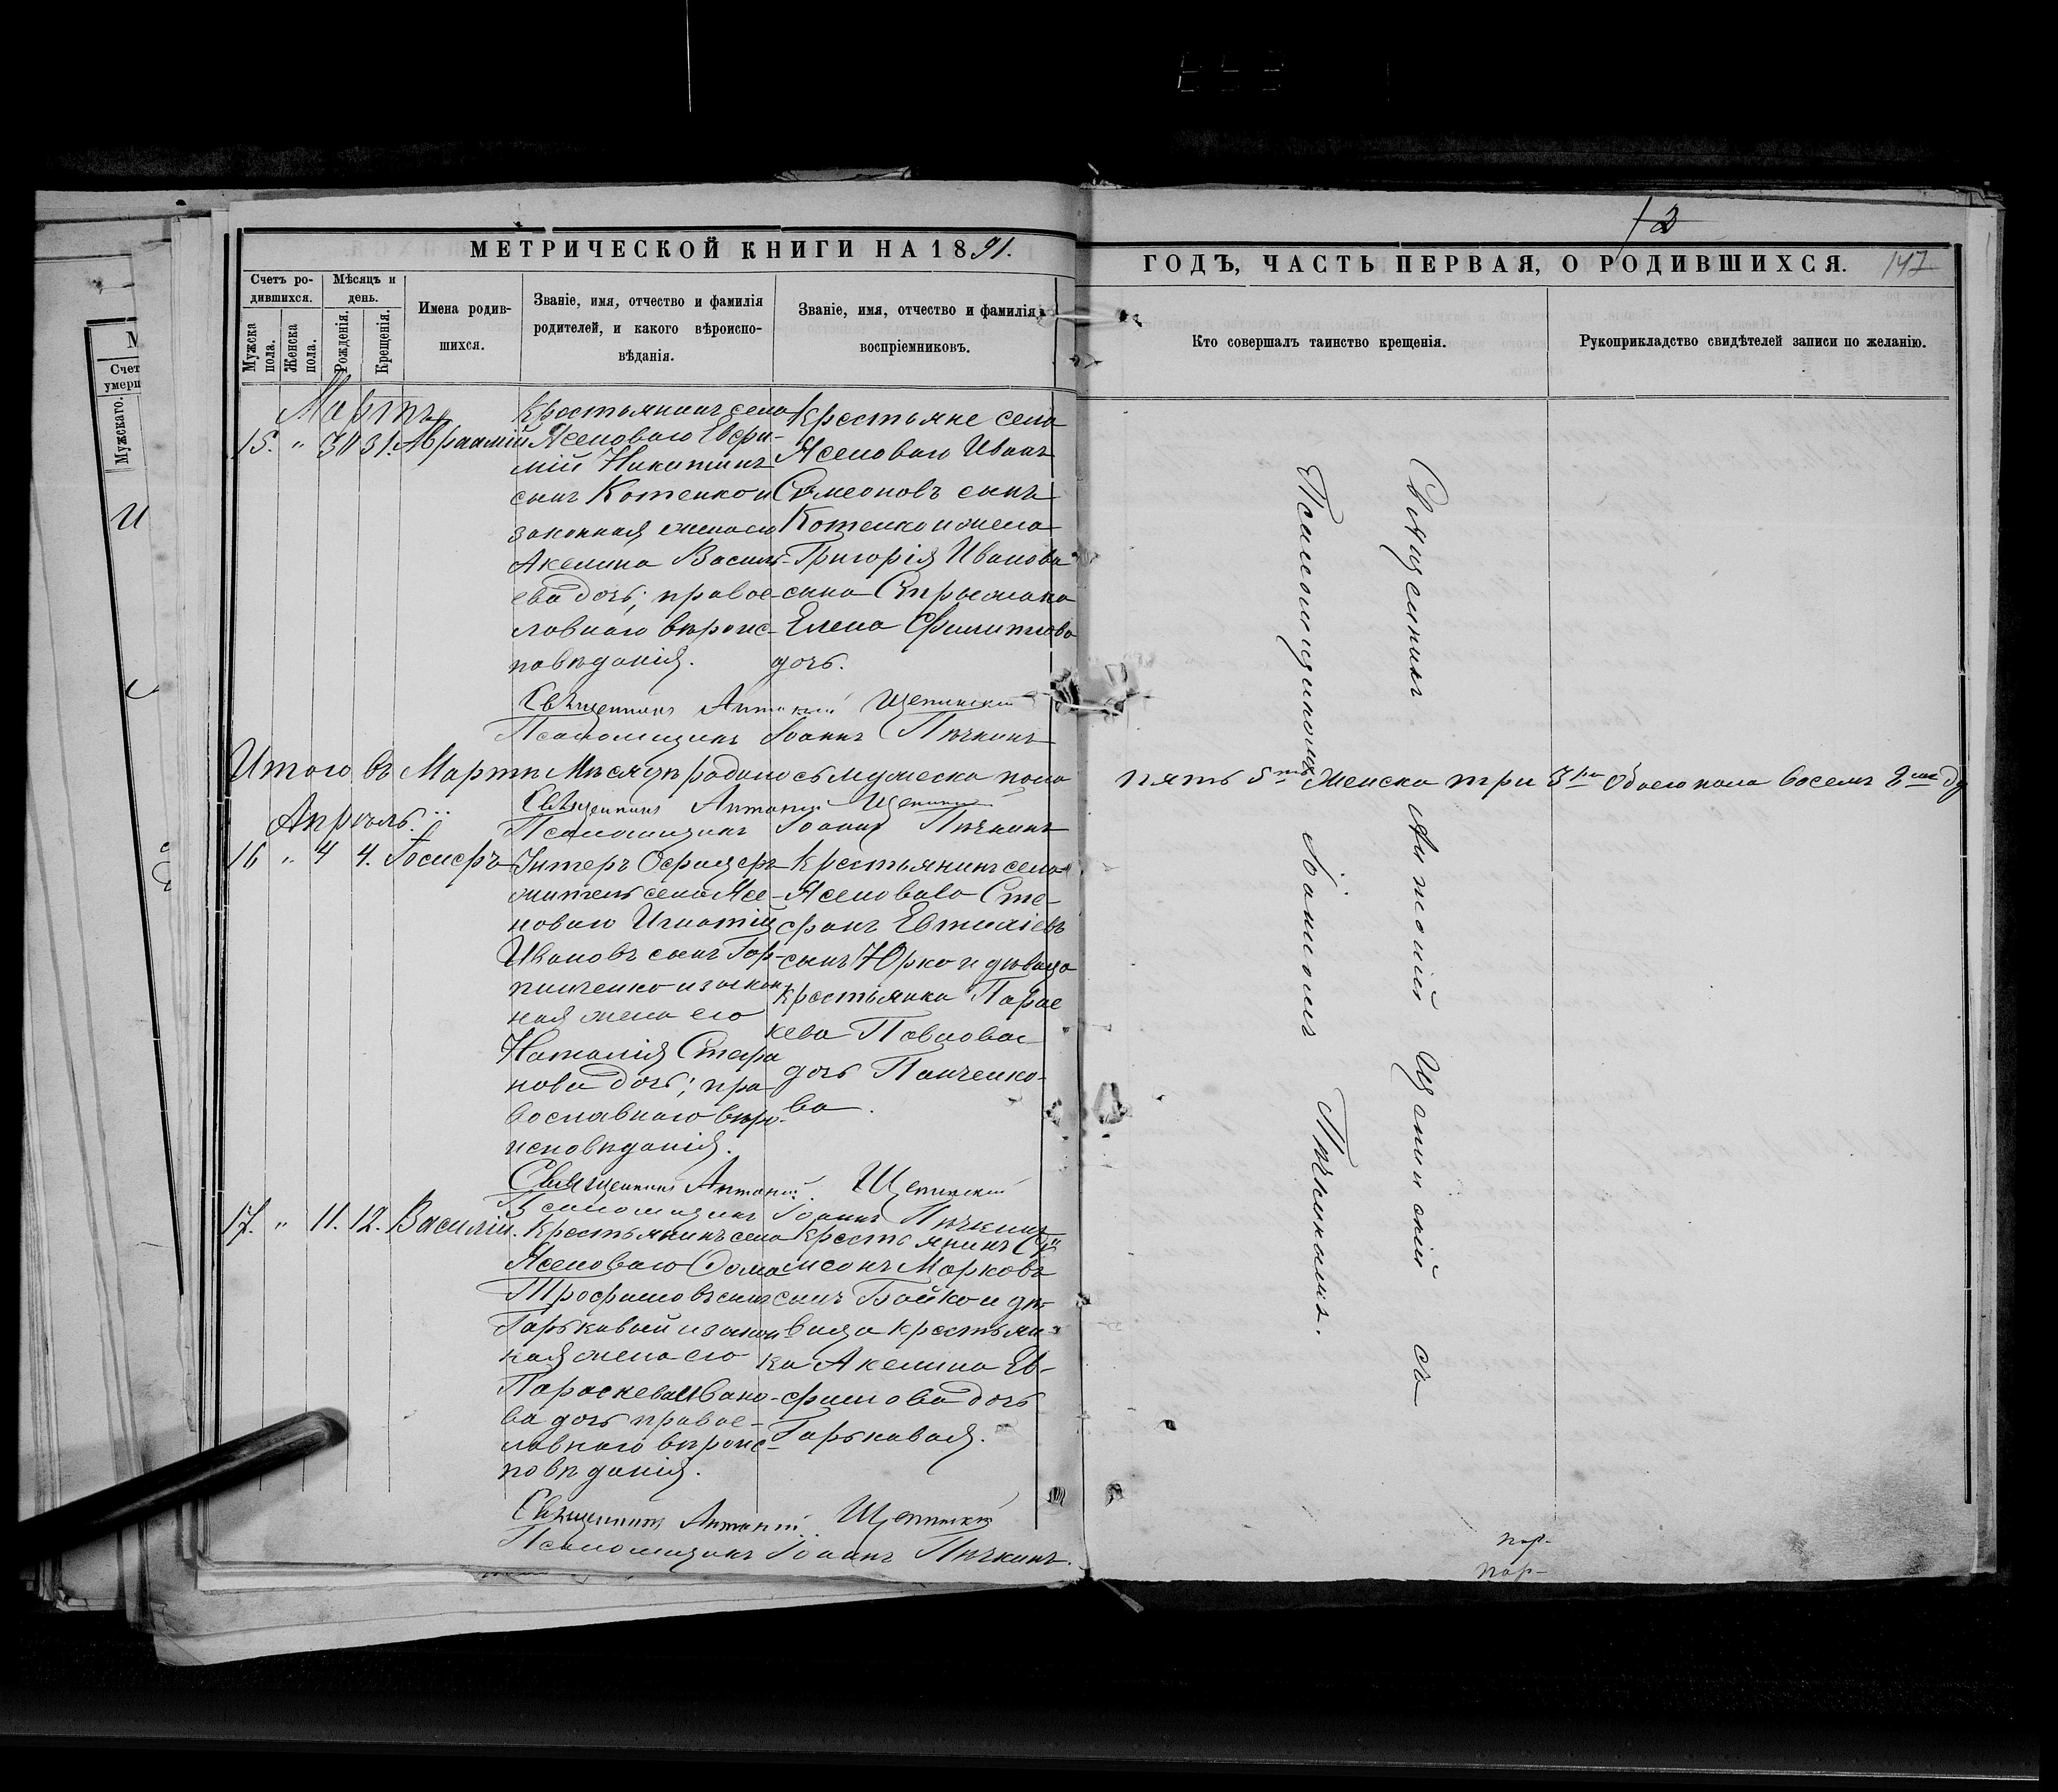 12
МЕТРИЧЕСКОЙ КНИГИ НА 1891.
ГОДЪ, ЧАСТЬ ПЕРВАЯ, О РОДИВШИХСЯ.
147
Счетъ ро-
дившихся.
Мѣсяцъ и
день.
Мужска
пола.
Женска
пола.
Рожденія.
Крещенія.
Имена родив-
шихся.
Званіе, имя, отчество и фамилія
родителей, и какого вѣроиспо-
вѣданія.
Званіе, имя, отчество и фамилія
воспріемниковъ.
Кто совершалъ таинство крещенія.
Рукоприкладство свидѣтелей записи по желанію.
Счет
умерш
Мужскаго.
Мартъ
15. " 30 31. Авраамій
Крестьянинъ села
Ясеноваго Евфи-
мій Никитинъ
сынъ Котенко и
законная жена его
Акелина Василь-
ева дочь; правос-
лавнаго вѣроис-
повѣданія.
Крестьяне села
Ясеноваго Иванъ
Симеоновъ сынъ
Котенко и жена
Григорія Иванова
сына
Елена Филиппова
дочь.
Священникъ Антоній Щепинскій
Псаломщикъ Іоаннъ Пѣчкинъ
Итого въ Мартѣ Мѣсяцѣ родилось мужеска пола
пять 5ть Женска три 3ри Обоего пола восемь 8мь ду
Священникъ Антоній Щепинскій
Псаломщикъ Іоаннъ Пѣчкинъ
Апрѣль.
16 " 4 4. Іосифъ
Унтеръ Офицеръ
житель села Ясе-
новаго Игнатій
Ивановъ сынъ Гор-
пинченко и закон
ная жена его
Наталія Стефа
нова дочь; пра
вославнаго вѣро-
исповѣданія.
Крестьянинъ села
Ясеноваго Сте-
фанъ Евтихіевъ
сынъ Юрко и дѣвица
крестьянка Парас
кева Павлова
дочь Панченко-
ва.
Священникъ Антоній Щепинскій
Псаломщикъ Іоаннъ Пѣчкинъ
17. " 11. 12. Василій.
Крестьянинъ села
Ясеноваго Фома
Трофимовъ сынъ
Горькавый и закон
ная жена его
Параскева Ивано-
ва дочь правос-
лавнаго вѣроис-
повѣданія.
Крестьянинъ Си
меонъ Марковъ
сынъ Бойко и дѣ-
вица крестьян-
ка Акелина Ев-
фимова дочь
Горькавая.
Священникъ Антоній Щепинскій
Псаломщикъ Іоаннъ Пѣчкинъ.
Священникъ Антоній Щепинскій съ
Псаломщикомъ Іоанномъ Пѣчкинымъ.